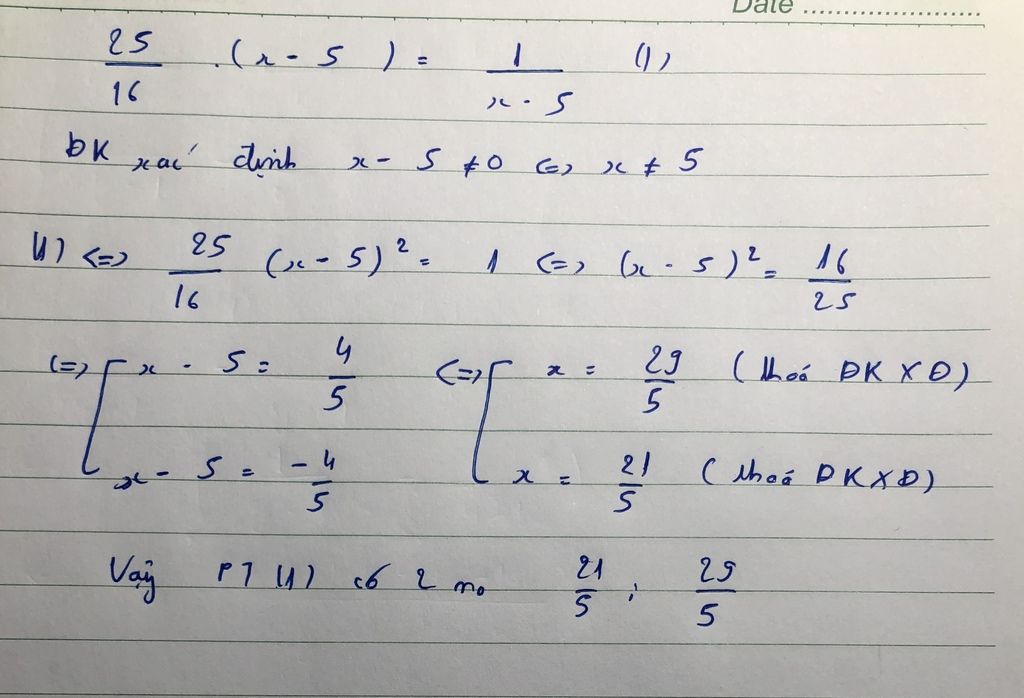 Date ........................
25/16 .(x - 5) = 1/(x - 5) (1)
ĐK xác định x - 5 ≠ 0 <=> x ≠ 5
(1) <=> 25/16 (x - 5)² = 1 <=> (x - 5)² = 16/25
<=> [ x - 5 = 4/5 <=> [ x = 29/5 (thoả ĐKXĐ)
x - 5 = -4/5 x = 21/5 (thoả ĐKXĐ)
Vậy PT (1) có 2 no 21/5 ; 29/5